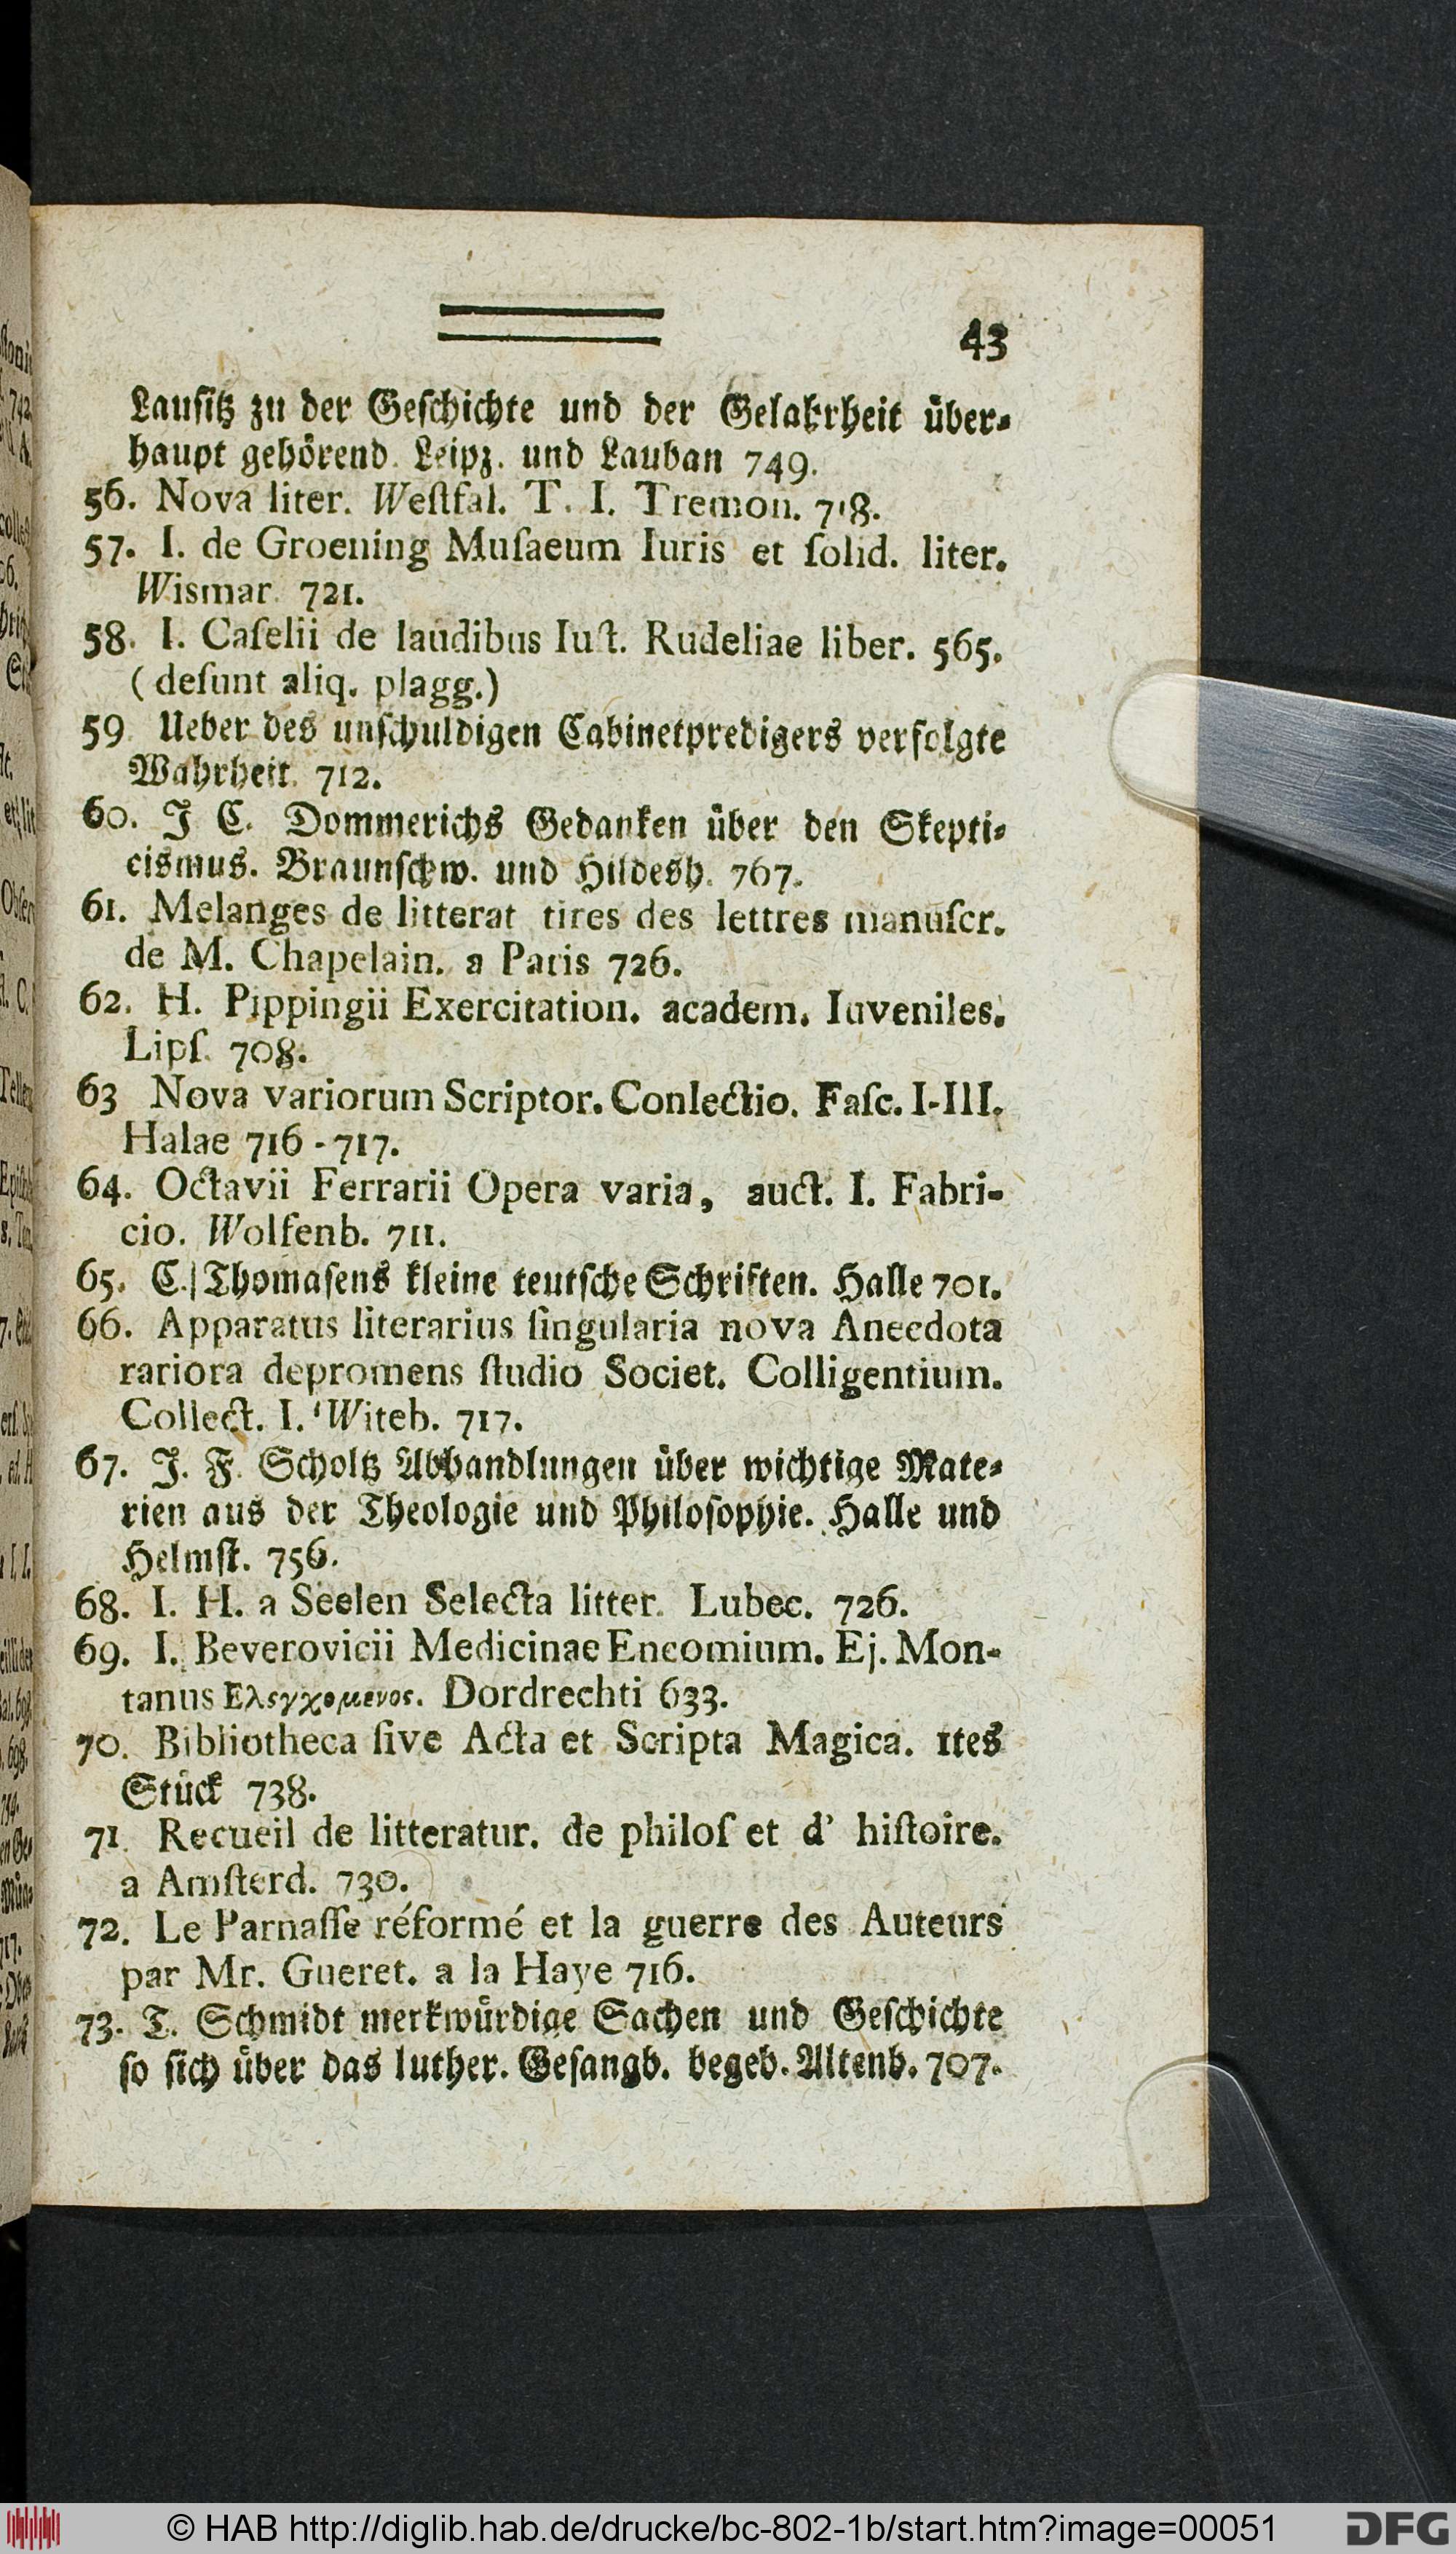 43
Lauſitz zu der Geſchichte und der Gelahrheit über-
haupt gehörend. Leipz. und Lauban 749.
56. Nova liter. Weſtfal. T. I. Tremon. 718.
57. I. de Groening Muſaeum Iuris et ſolid. liter.
Wismar. 721.
58. I. Caſelii de laudibus Iuſt. Rudeliae liber. 565.
(deſunt aliq. plagg.)
59. Ueber des unſchuldigen Cabinetpredigers verfolgte
Wahrheit. 712.
60. J C. Dommerichs Gedanken über den Skepti-
cismus. Braunſchw. und Hildesh. 767.
61. Melanges de litterat tires des lettres manuſcr.
de M. Chapelain. a Paris 726.
62. H. Pippingii Exercitation. academ. Iuveniles.
Lipſ. 708.
63 Nova variorum Scriptor. Conlectio. Faſc. I-III.
Halae 716-717.
64. Octavii Ferrarii Opera varia, auct. I. Fabri-
cio. Wolfenb. 711.
65. C. Thomaſens kleine teutſche Schriften. Halle 701.
66. Apparatus literarius ſingularia nova Anecdota
rariora depromens ſtudio Societ. Colligentium.
Collect. I. Witeb. 717.
67. J. F. Scholtz Abhandlungen über wichtige Mate-
rien aus der Theologie und Philoſophie. Halle und
Helmſt. 756.
68. I. H. a Seelen Selecta litter. Lubec. 726.
69. I. Beverovicii Medicinae Encomium. Ej. Mon-
tanus Ελεγχομενος. Dordrechti 633.
70. Bibliotheca ſive Acta et Scripta Magica. 1tes
Stück 738.
71. Recueil de litteratur. de philoſ et d' hiſtoire.
a Amſterd. 730.
72. Le Parnaſſe réformé et la guerre des Auteurs
par Mr. Gueret. a la Haye 716.
73. T. Schmidt merkwürdige Sachen und Geſchichte
ſo ſich über das luther. Geſangb. begeb. Altenb. 707.
© HAB http://diglib.hab.de/drucke/bc-802-1b/start.htm?image=00051
DFG